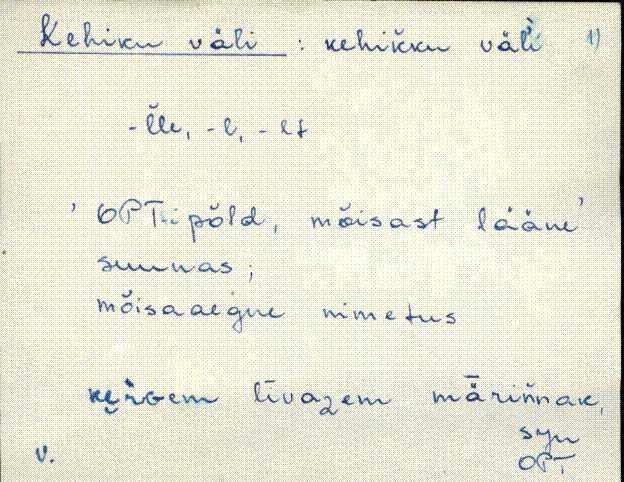 Kehiku väli : kehikku väli 1)
-l̆le, -l, -lt
'OPT-i põld, mõisast lääne'
suunas;
mõisaaegne nimetus
līvaʒem māriňnak,
syn
v. OPT